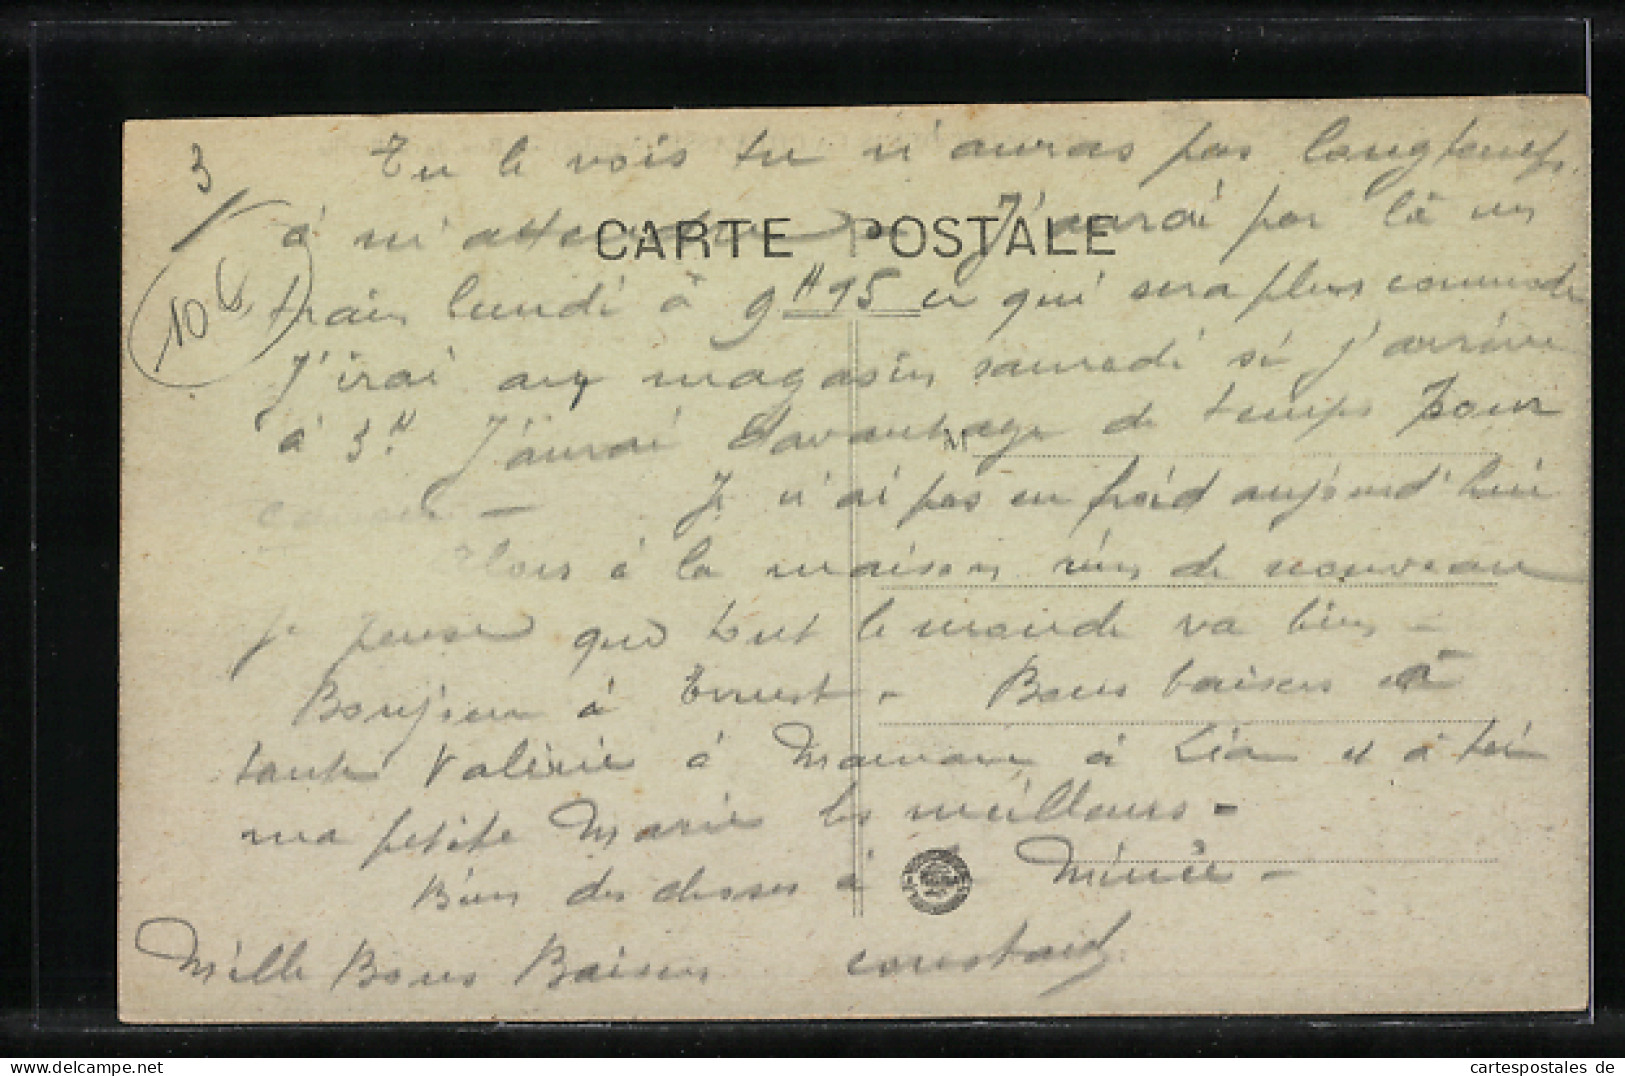 3
Tu le vois tu n'auras pas longtemps
à m'attendre J'aurai par là un
CARTE POSTALE
10 6
train lundi à 9 H 15 ce qui sera plus commode
J'irai au magasin samedi si j'arrive
à 3 H. J'aurai davantage de temps pour
M
causer - Je n'ai pas eu froid aujourd'hui
Alors à la maison rien de nouveau
je pense que tout le monde va bien -
Bonjour à Ernest - Bons baisers à
tante Valérie à Maman à Léa et à toi
ma petite Marie les meilleurs -
Bien des choses à Minie -
Mille Bons Baisers Constant
cartespostales de